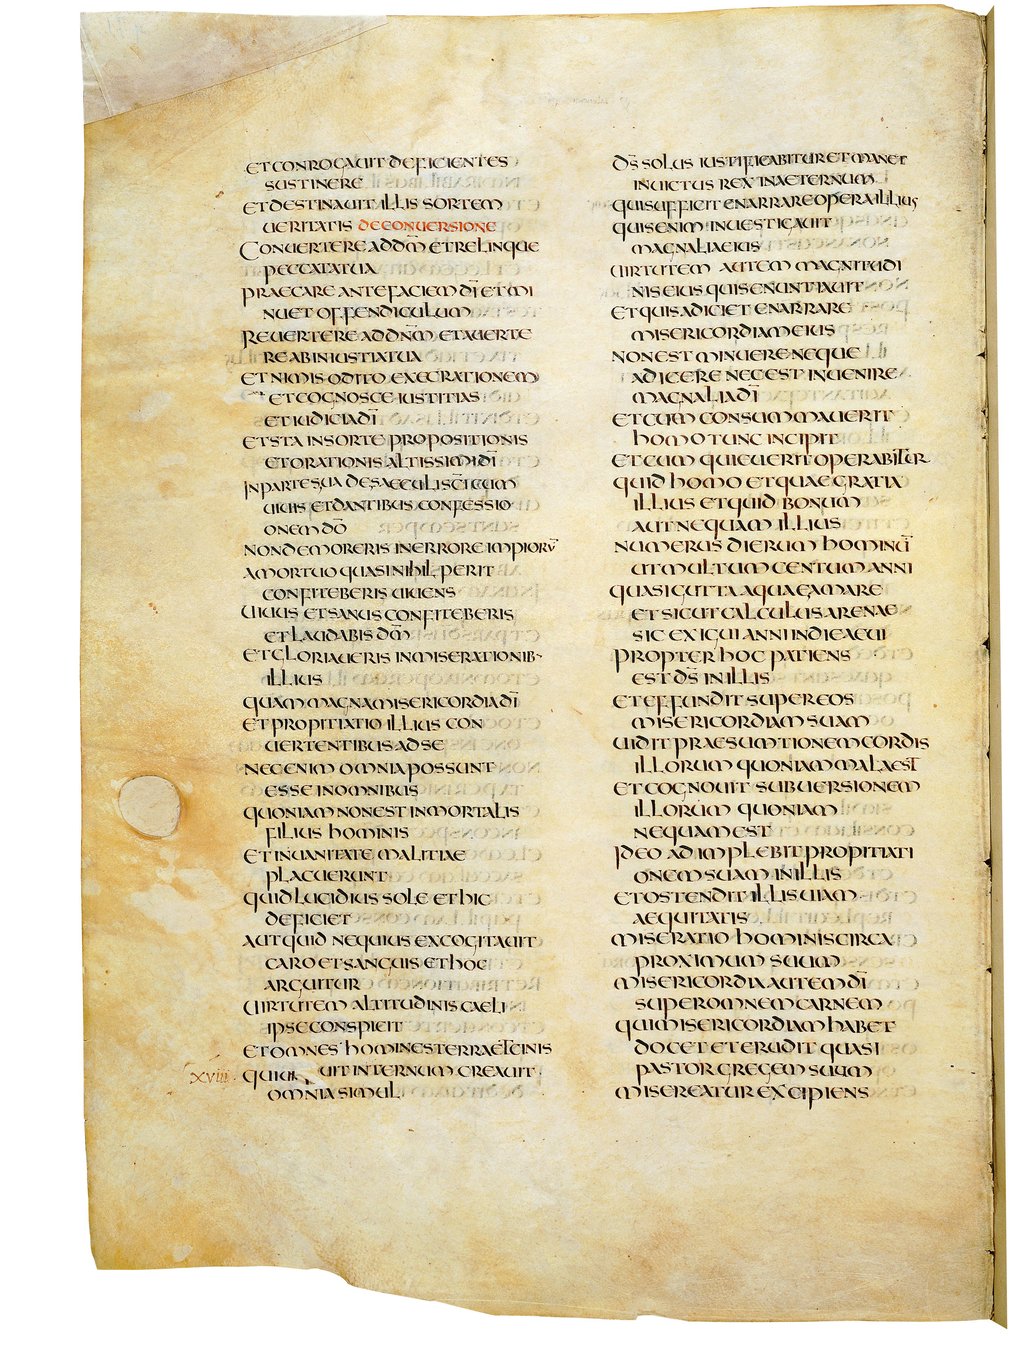 ET CONROGAUIT DEFICIENTES
SUSTINERE
ET DESTINAUIT ILLIS SORTEM
UERITATIS DE CONUERSIONE
CONUERTERE AD DM̄ ET RELINQUE
PECCATA TUA
PRAECARE ANTE FACIEM DĪ ET MI
NUET OFFENDICULUM
REUERTERE AD DNM̄ ET AUERTE
RE AB INIUSTITIA TUA
ET NIMIS ODITO EXECRATIONEM
ET COGNOSCE IUSTITIAS
ET IUDICIA DĪ
ET STA IN SORTE PROPOSITIONIS
ET ORATIONIS ALTISSIMI DĪ
IN PARTES UADE SAECULI SC̄I CUM
UIUIS ET DANTIBUS CONFESSIO
ONEM DŌ
NON DEMORERIS IN ERRORE IMPIORŪ
A MORTUO QUASI NIHIL PERIT
CONFITEBERIS UIUENS
UIUUS ET SANUS CONFITEBERIS
ET LAUDABIS DM̄
ET GLORIAUERIS IN MISERATIONIB·
ILLIUS
QUAM MAGNA MISERICORDIA DĪ
ET PROPITIATIO ILLIUS CON
UERTENTIBUS AD SE
NEC ENIM OMNIA POSSUNT
ESSE IN OMNIBUS
QUONIAM NON EST INMORTALIS
FILIUS HOMINIS
ET IN UANITATE MALITIAE
PLACUERUNT
QUID LUCIDIUS SOLE ET HIC
DEFICIET
AUT QUID NEQUIUS EXCOGITAUIT
CARO ET SANGUIS ET HOC
ARGUITUR
UIRTUTEM ALTITUDINIS CAELI
IPSE CONSPICIT
ET OMNES HOMINES TERRA ET CINIS
XVIII· QUI UIUIT IN TERNUM CREAUIT·
OMNIA SIMUL
DS̄ SOLUS IUSTIFICABITUR ET MANET
INUICTUS REX IN AETERNUM
QUI SUFFICIT ENARRARE OPERA ILLIUS
QUIS ENIM INUESTIGAUIT
MAGNALIA EIUS
UIRTUTEM AUTEM MAGNITUDI
NIS EIUS QUIS ENUNTIAUIT
ET QUIS ADICIET ENARRARE
MISERICORDIAM EIUS
NON EST MINUERE NEQUE
ADICERE NEC EST INUENIRE
MAGNALIA DĪ
ET CUM CONSUMMAUERIT
HOMO TUNC INCIPIT
ET CUM QUIEUERIT OPERABITUR
QUID HOMO ET QUAE GRATIA
ILLIUS ET QUID BONUM
AUT NEQUAM ILLIUS
NUMERUS DIERUM HOMINŪ
UT MULTUM CENTUM ANNI
QUASI GUTTA AQUAE A MARE
ET SICUT CALCULUS ARENAE
SIC EXIGUI ANNI IN DIE AEUI
PROPTER HOC PATIENS
EST DS̄ IN ILLIS
ET EFFUNDIT SUPER EOS
MISERICORDIAM SUAM
UIDIT PRAESUMTIONEM CORDIS
ILLORUM QUONIAM MALA EST
ET COGNOUIT SUBUERSIONEM
ILLORUM QUONIAM
NEQUAM EST
IDEO ADIMPLEBIT PROPITIATI
ONEM SUAM IN ILLIS
ET OSTENDIT ILLIS UIAM
AEQUITATIS
MISERATIO HOMINIS CIRCA
PROXIMUM SUUM
MISERICORDIA AUTEM DĪ
SUPER OMNEM CARNEM
QUI MISERICORDIAM HABET
DOCET ET ERUDIT QUASI
PASTOR GREGEM SUUM
MISEREATUR EXCIPIENS